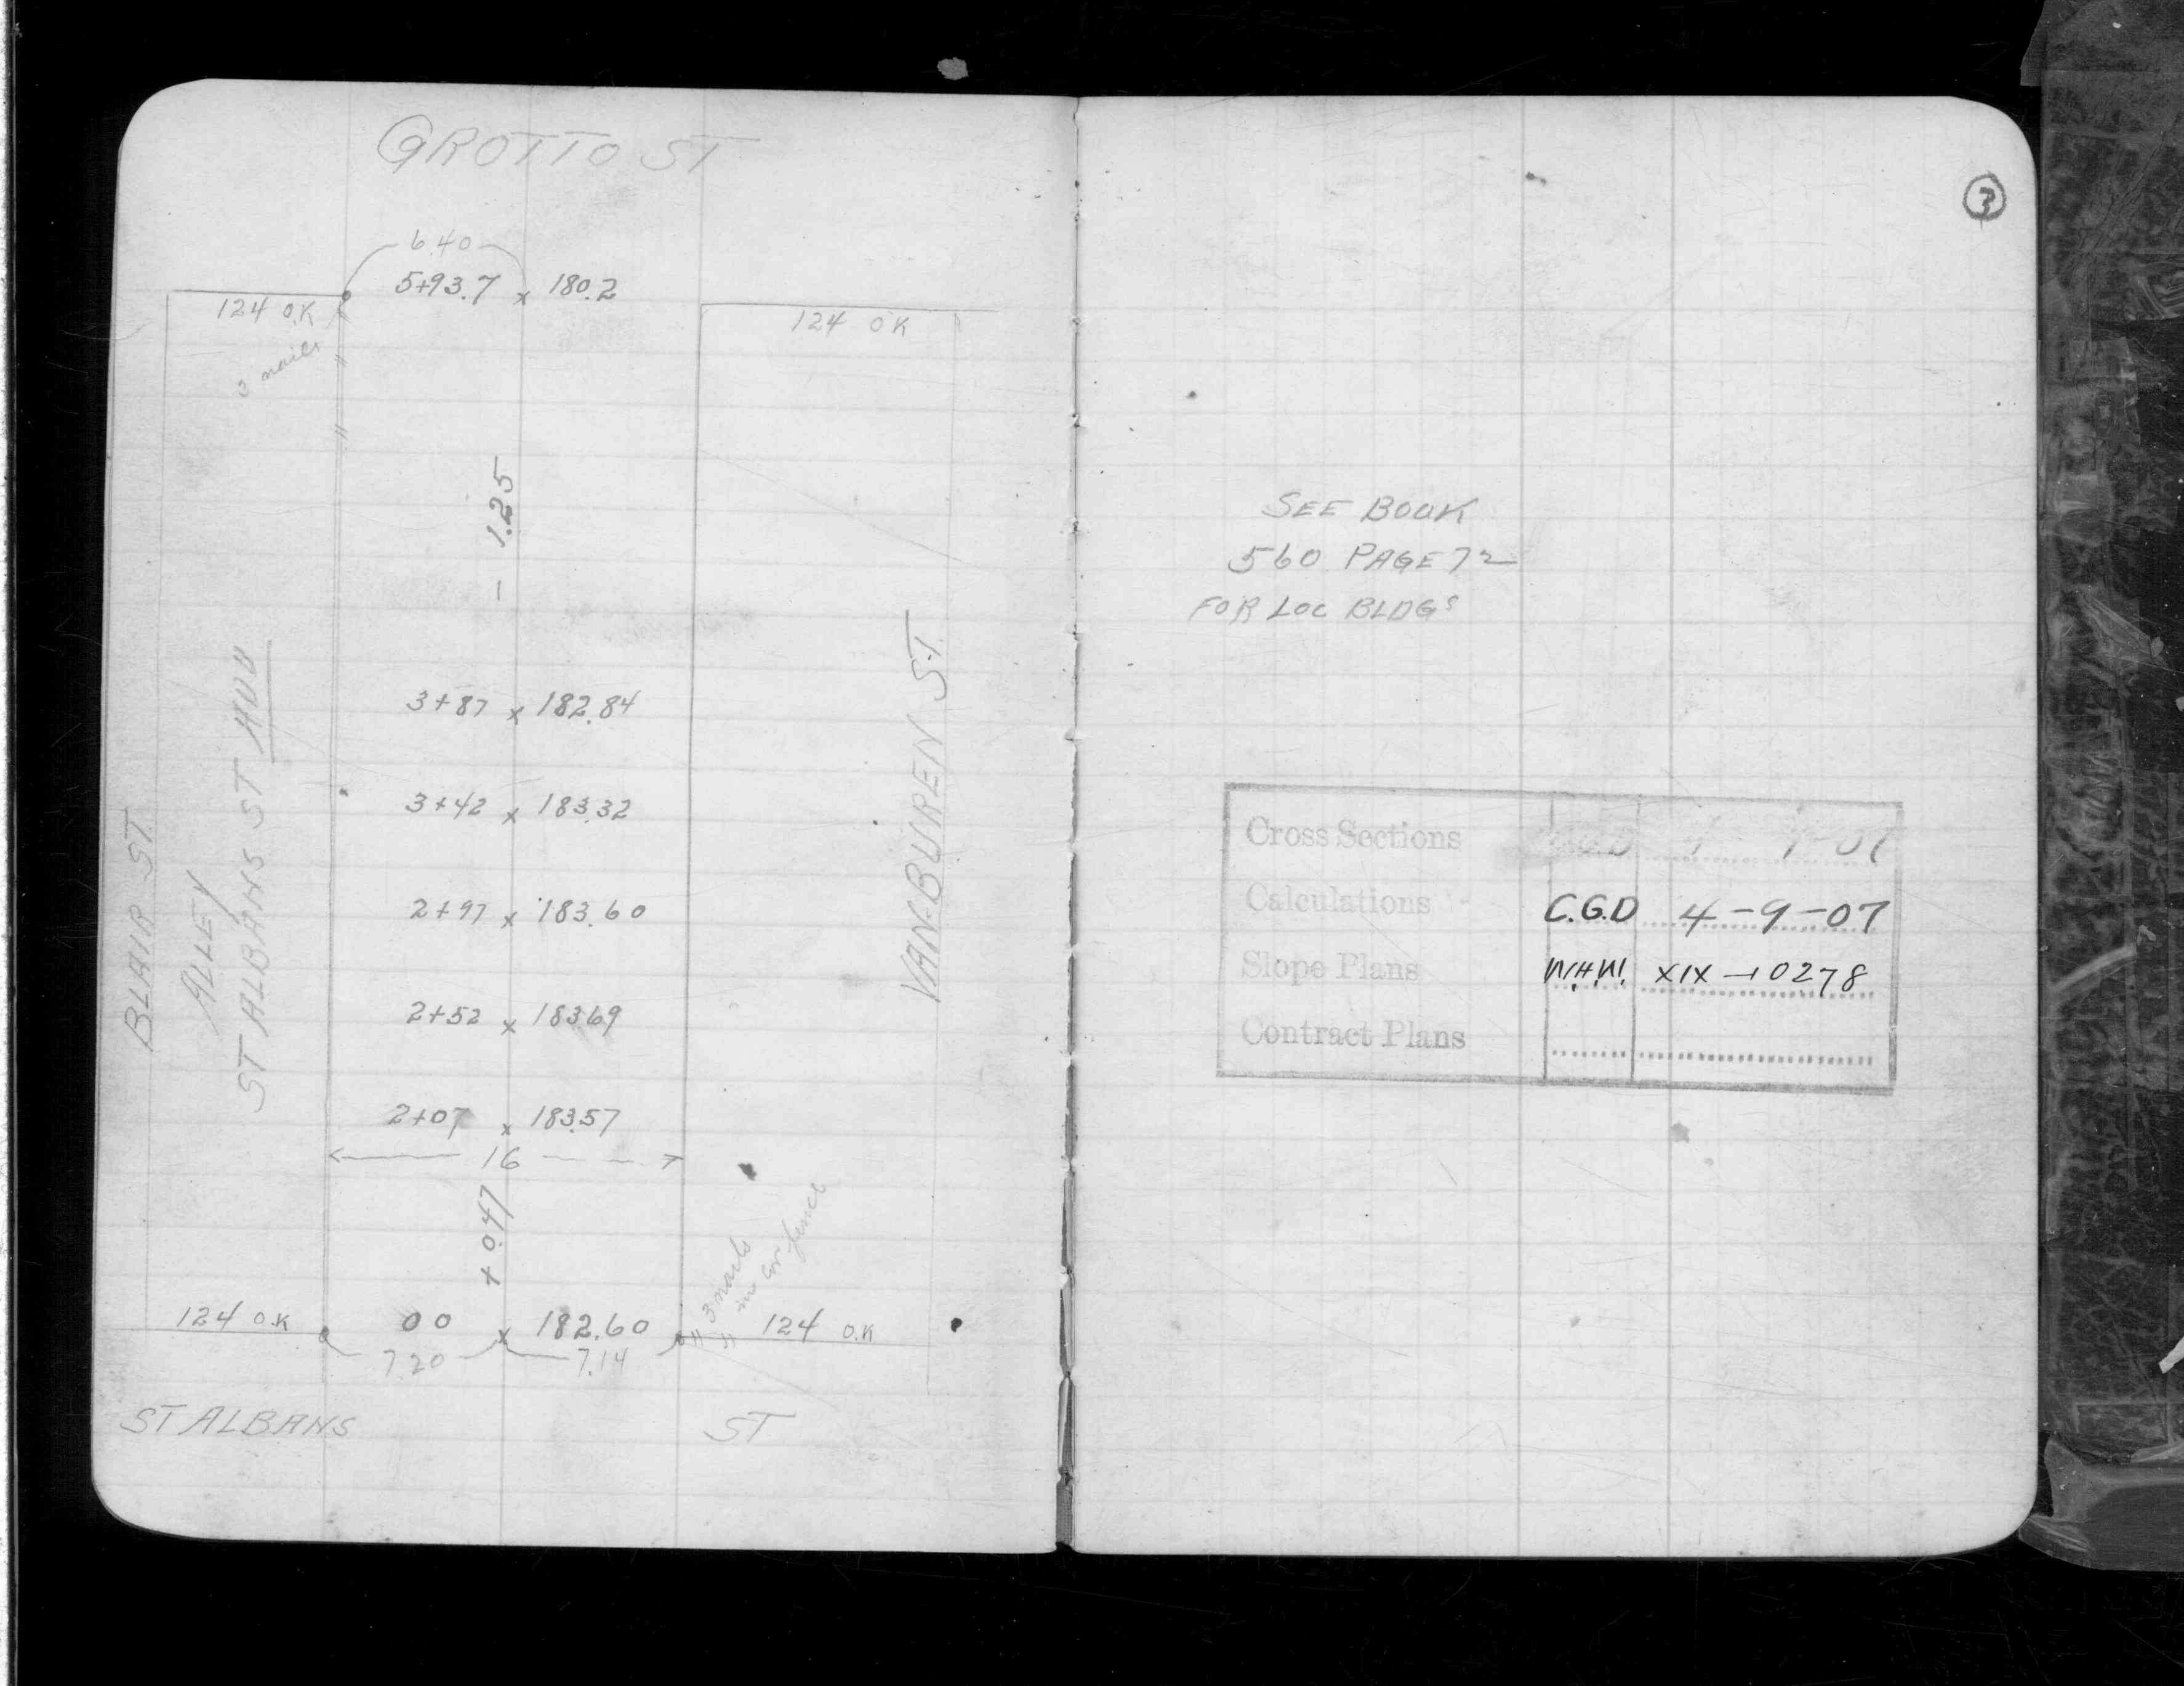 GROTTO ST
6.40
5+93.7 x 180.2
124 O.K
124 OK
3 nails
- 1.25
3+87 x 182.84
3+42 x 183.32
2+97 x 183.60
2+52 x 183.69
2+07 x 183.57
16
+ 0.47
BLAIR ST.
ALLEY
ST ALBANS ST ADD
VAN-BUREN ST.
3 nails
in cor fence
124 O.K 00 x 182.60 124 O.K
7.20 7.14
ST ALBANS ST
3
SEE BOOK
560 PAGE 72
FOR LOC BLDGS
Cross Sections
Calculations C.G.D 4-9-07
Slope Plans W.H.W. XIX-0278
Contract Plans